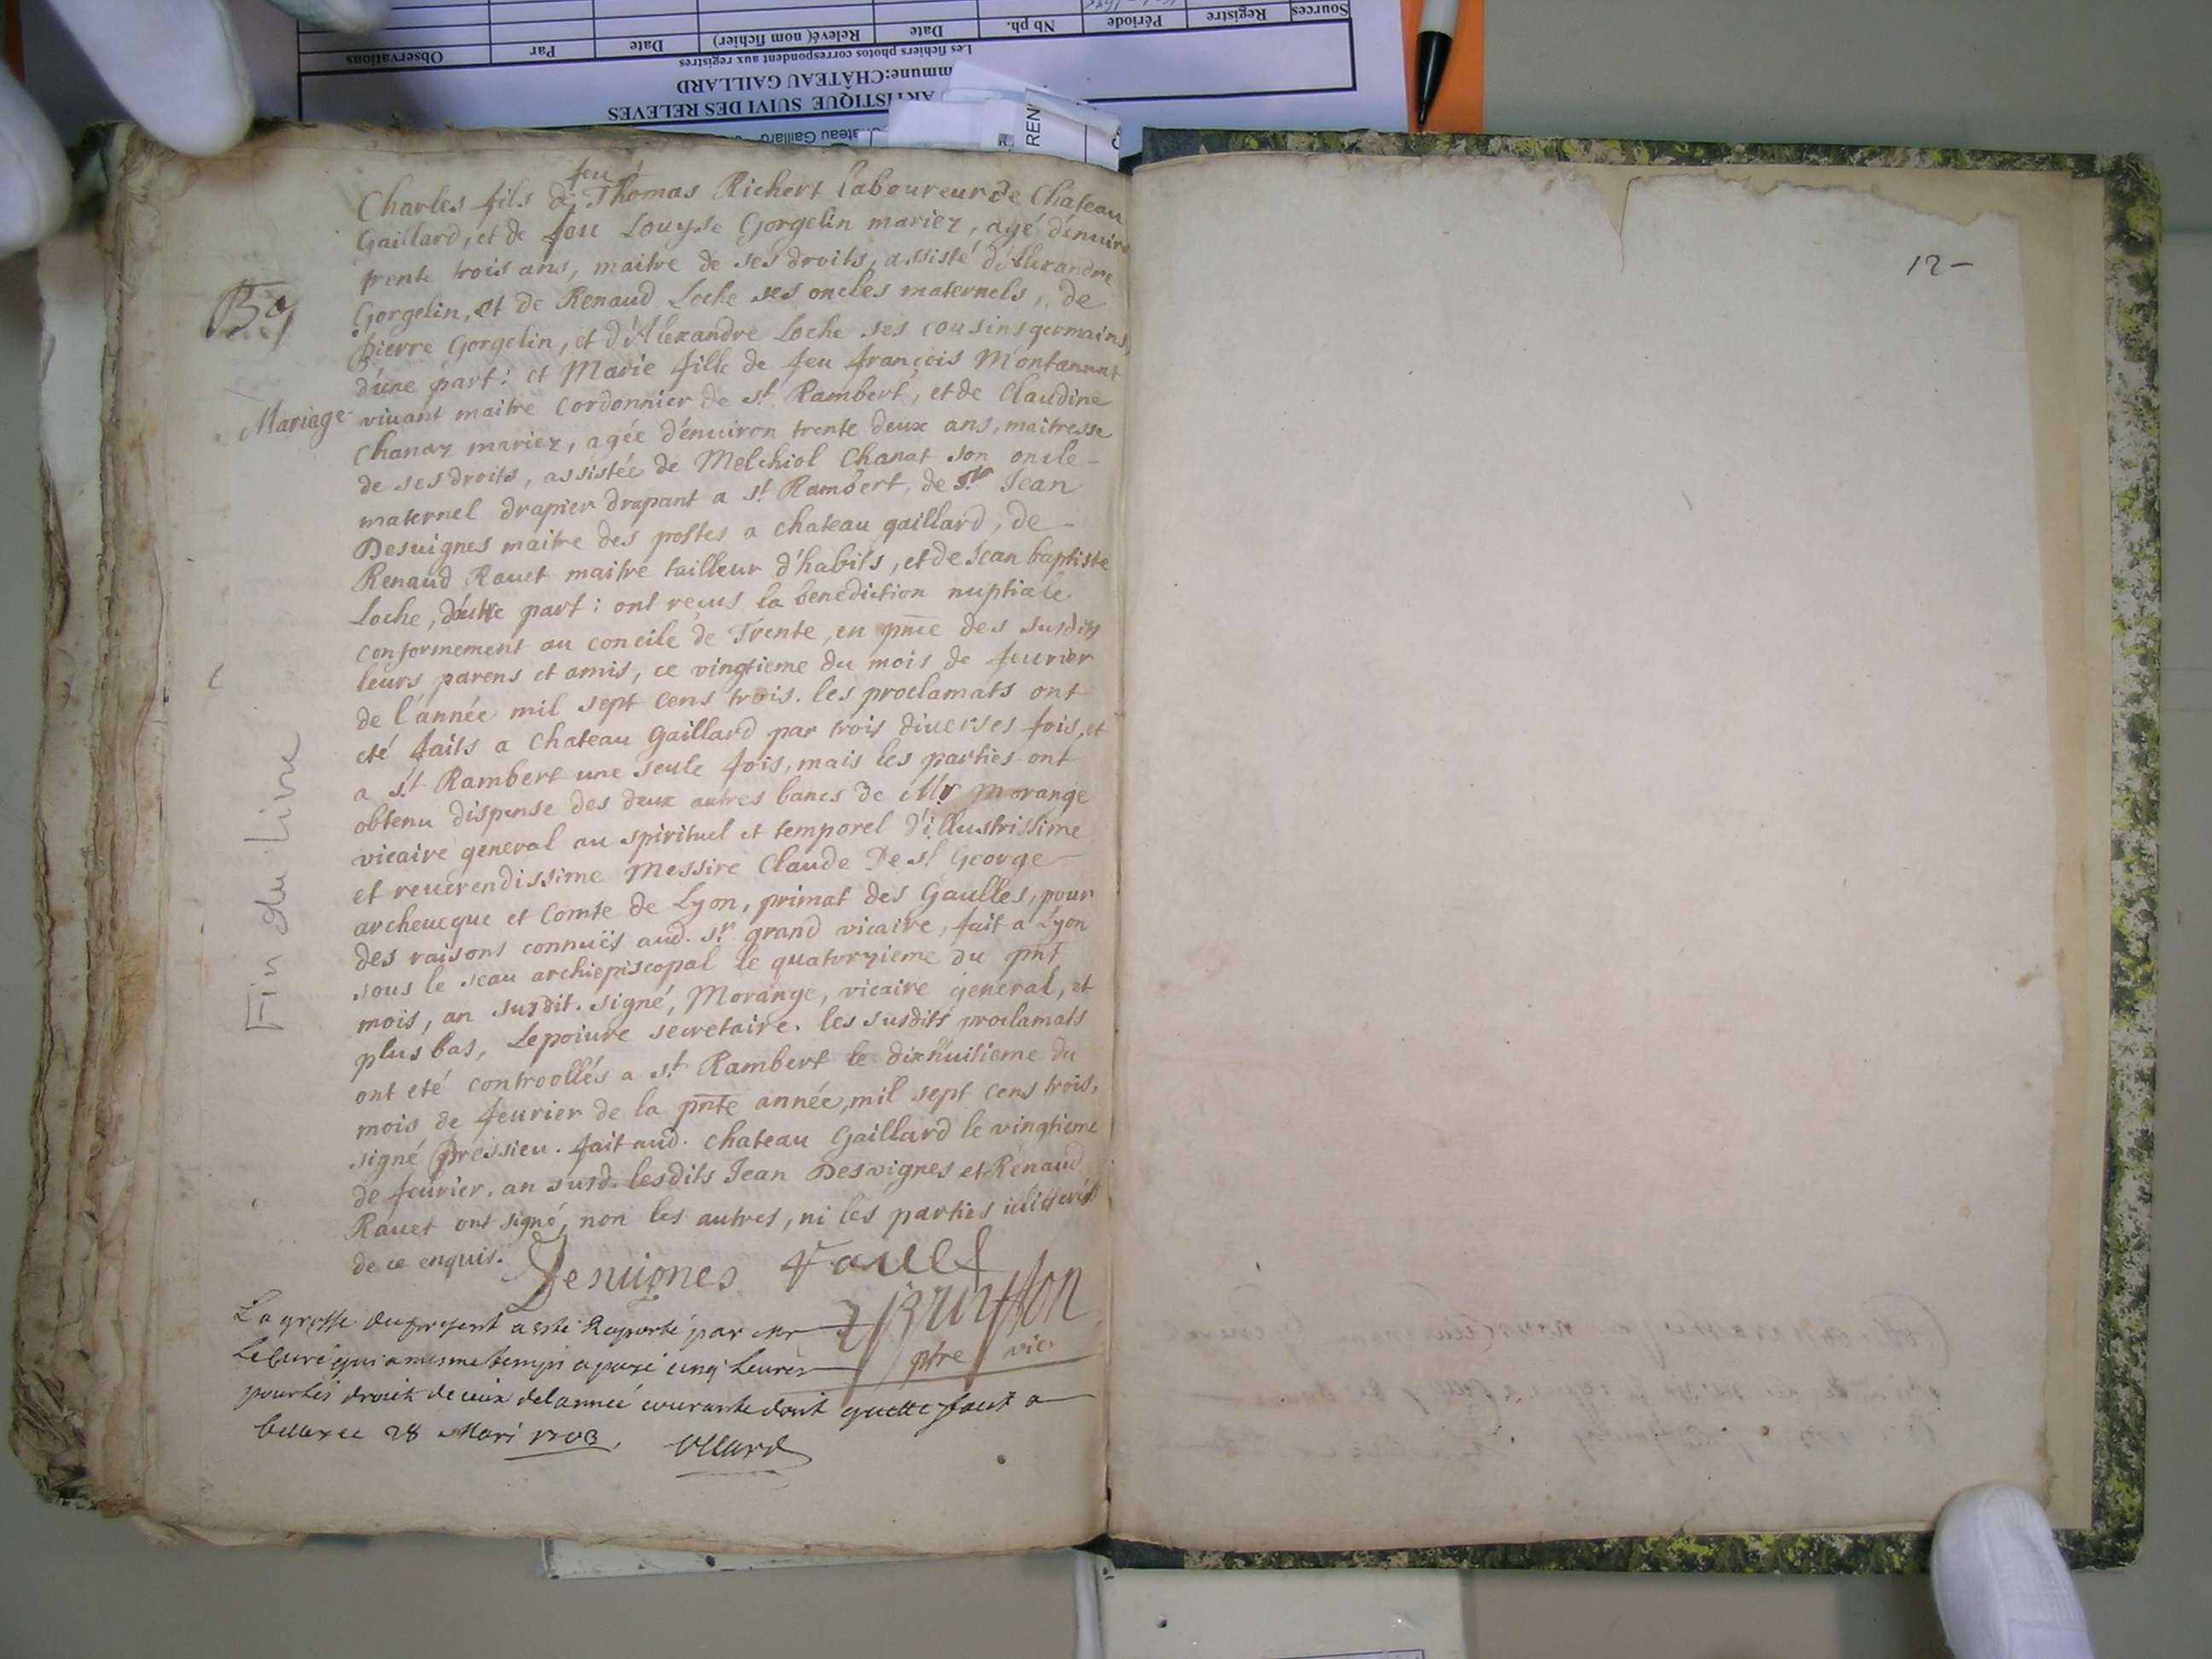 Sources Registre Période Nb ph. Date Relevé( nom fichier) Date Par Observations
Les fichiers photos correspondent aux registres
mmune:CHÂTEAU GAILLARD
ARTISTIQUE SUIVI DES RELEVES
REN
feu
Charles fils de Thomas Richert laboureur de Chateau
Gaillard, et de feu Louyse Gorgelin mariez, agé d'enuiron
trente trois ans, maitre de ses droits, assisté d'Allexandre
Gorgelin, et de Renaud Loche ses oncles maternels, de
pierre Gorgelin, et d'Alexandre Loche ses cousins germains,
d'une part: et Marie fille de feu françois Montannat
Mariage
viuant maitre Cordonnier de st Rambert, et de Claudine
Chanaz mariez, agée d'enuiron trente deux ans, maitresse
de ses droits, assistée de Melchiol Chanat son oncle
maternel drapier drapant a st Rambert, de sr Jean
Desuignes maitre des postes a chateau gaillard, de
Renaud Rauet maitre tailleur d'habits, et de Jean baptiste
Loche, d'autre part: ont reçus la benediction nuptiale
conformement au concile de Trente, en pnce des susdits
leurs parens et amis, ce vingtieme du mois de feurier
de l'année mil sept cens trois. les proclamats ont
eté faits a Chateau Gaillard par trois diuerses fois, et
a st Rambert une seule fois, mais les parties ont
obtenu dispense des deux autres bancs de Mr Morange
vicaire general au spirituel et temporel d'illustrissime
et reuerendissime Messire Claude De st George
archeueque et Comte de Lyon, primat des Gaulles, pour
des raisons connuës aud. sr grand vicaire, fait a Lyon
sous le seau archiepiscopal le quatorzieme du pnt
mois, an susdit. signé, Morange, vicaire general, et
plus bas, Lepoiure secretaire. les susdits proclamats
ont eté controollés a st Rambert le dixhuitieme du
mois de feurier de la pnte année, mil sept cens trois,
signé pressieu. fait aud. Chateau Gaillard le vingtieme
de feurier, an susd. lesdits Jean Desvignes et Renaud
Rauet ont signé, non les autres, ni les parties
de ce enquis.
Desuignes rauet
ptre vic
La grosse du present a esté Raporté par Mr
Le Curé qui a mesme temps a payé cinq Leures
pour les droits de ceux de l'année courante dont quitte faict a
ce 28 Mars 1703.
Fin du livre
12